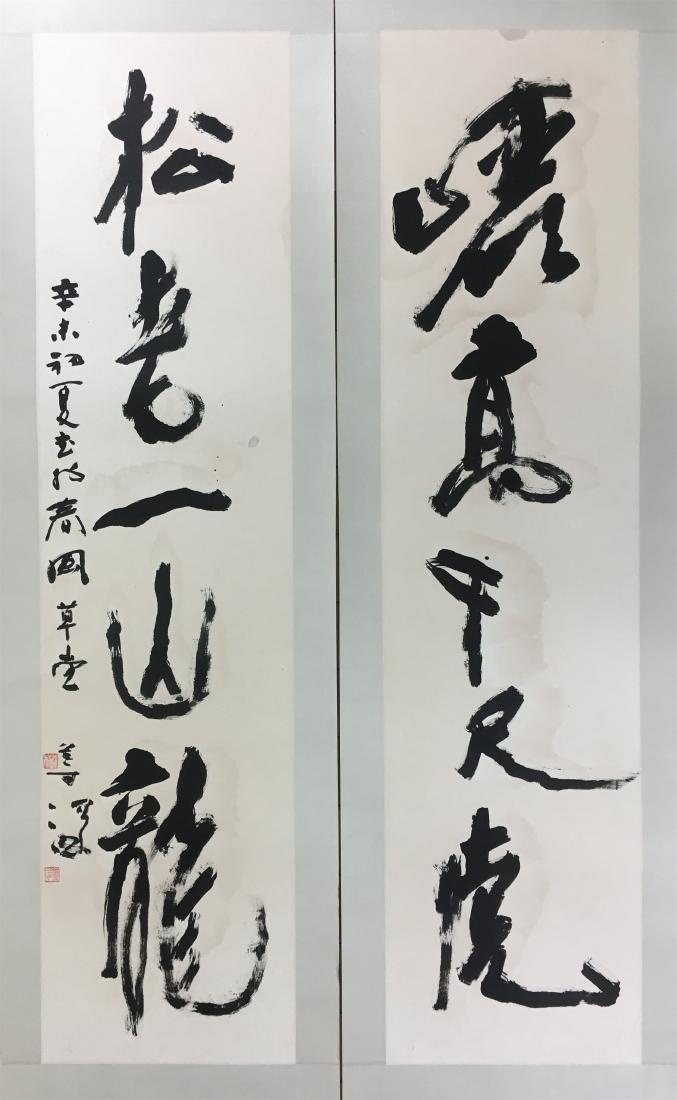 巖高千尺虎
松老一山龍
辛未初夏書於春風草堂